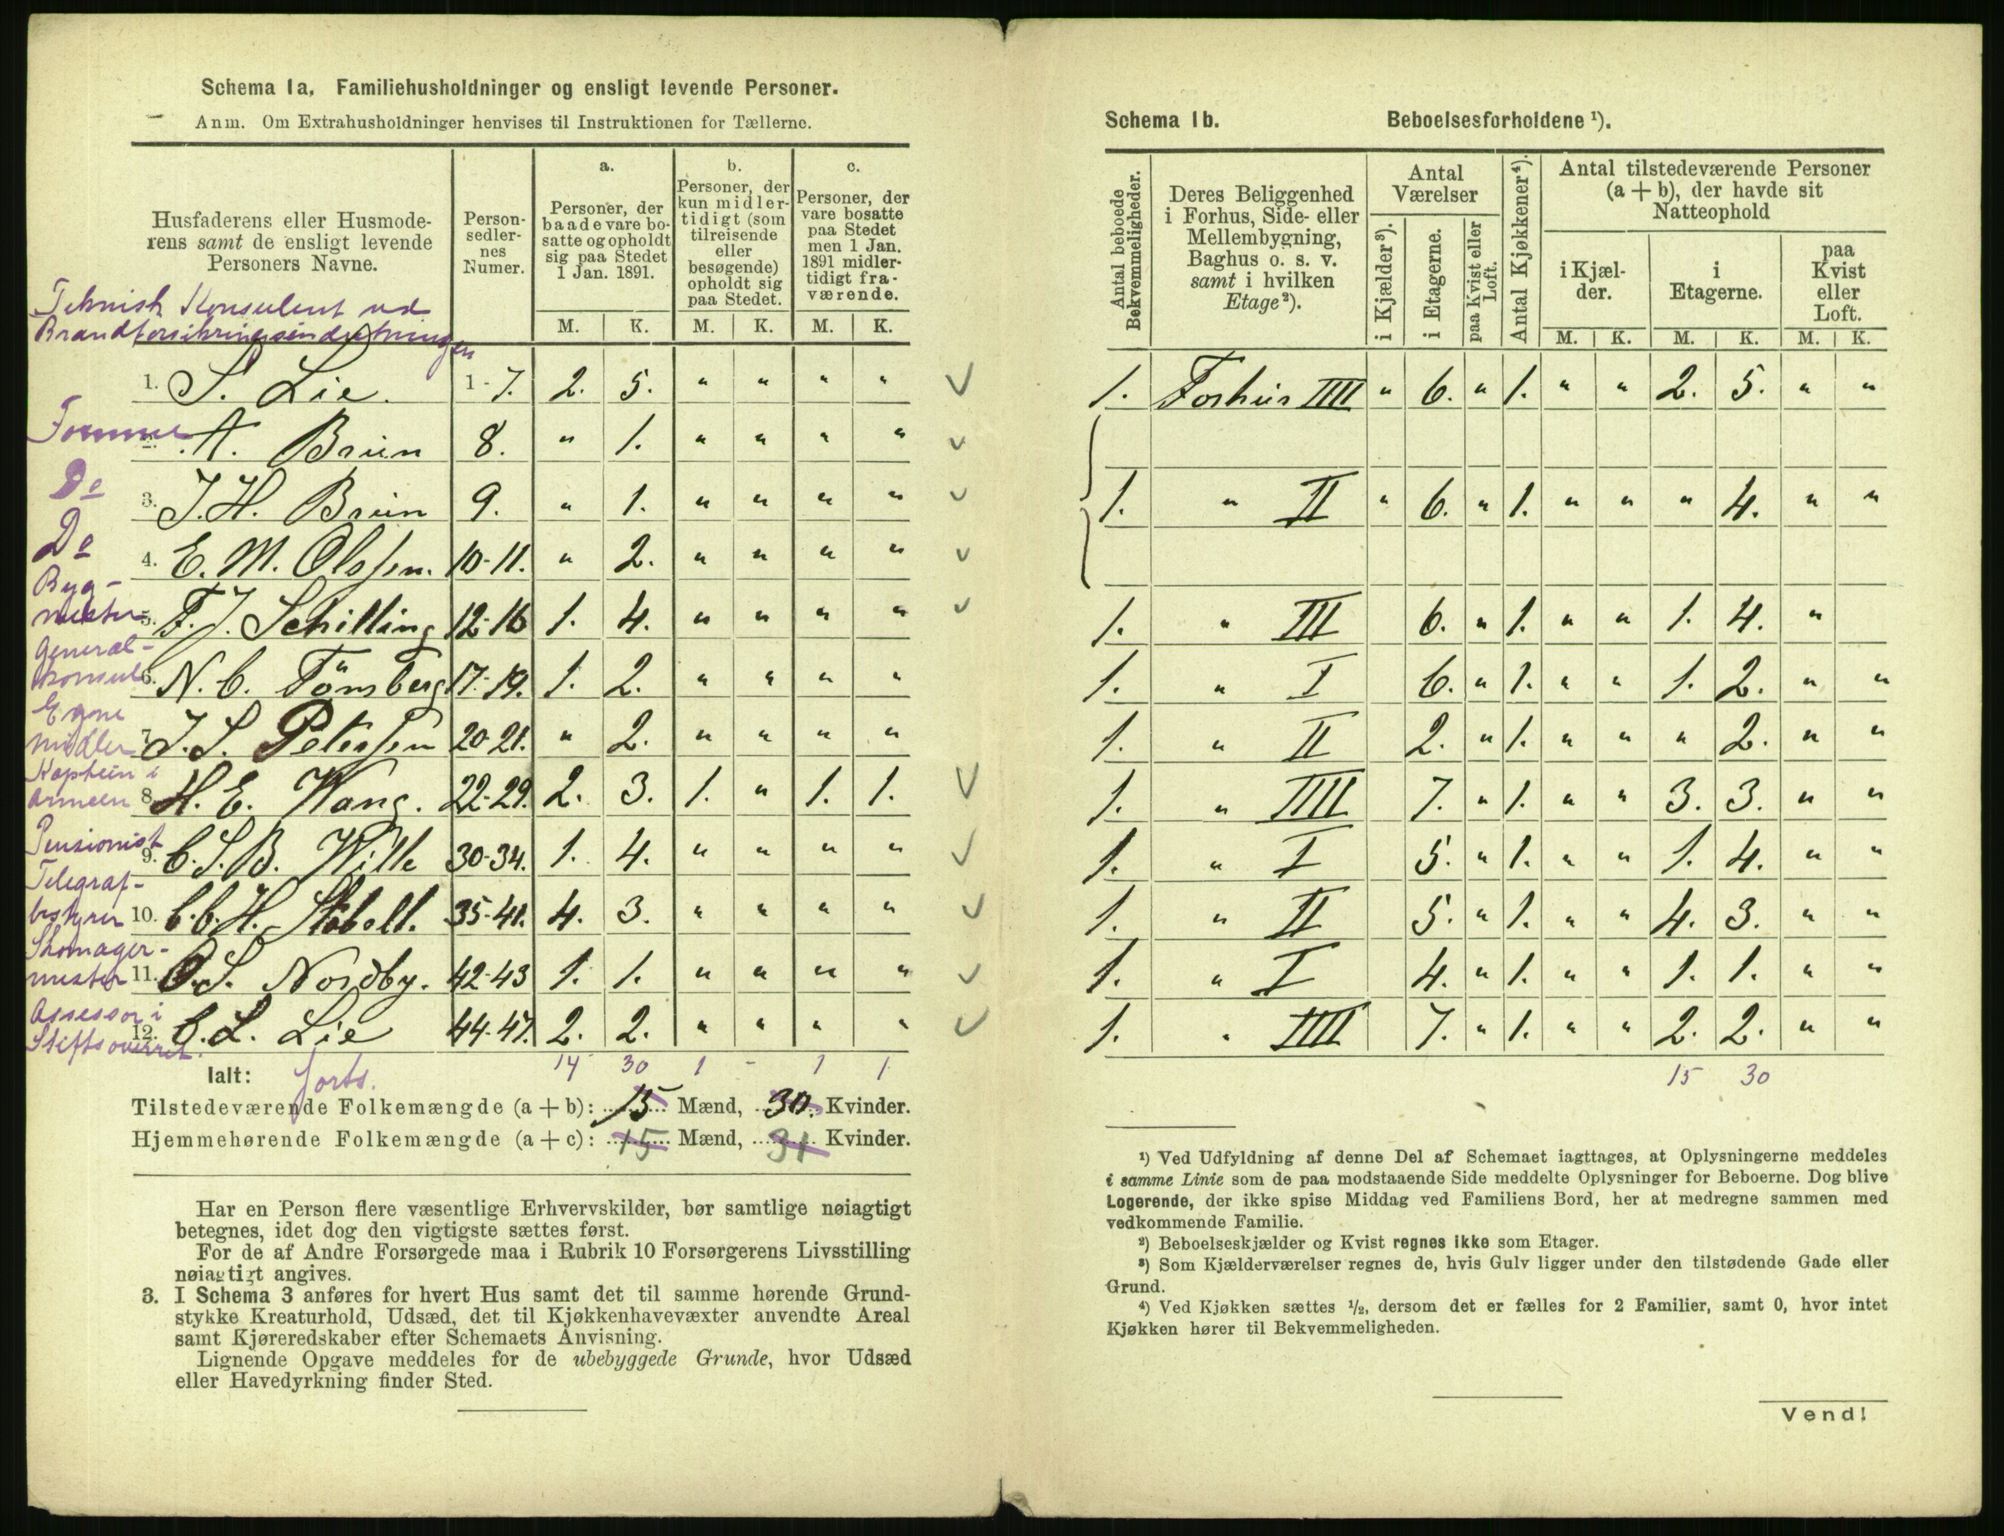 Schema 1a. Familiehusholdninger og ensligt levende Personer.
Anm. Om Extrahusholdninger henvises til Instruktionen for Tællerne.
Husfaderens eller Husmode-
rens samt de ensligt levende
Personers Navne.
Person-
sedler-
nes
Numer.
a.
Personer, der
baade vare bo-
satte og opholdt
sig paa Stedet
1 Jan. 1891.
b.
Personer, der
kun midler-
tidigt (som
tilreisende
eller
besøgende)
opholdt sig
paa Stedet.
c.
Personer, der
vare bosatte
paa Stedet
men 1 Jan.
1891 midler-
tidigt fra-
værende.
M. K. M. K. M. K.
Teknisk Konsulent ved
Brandforsikringsindretningen
1. S. Lie. 1-7. 2. 5. " " " "
2. A. Brun 8. " 1. " " " "
Do
3. J. H. Brun 9. " 1. " " " "
Do
4. E. M. Olssen. 10-11. " 2. " " " "
Byg-
mester
5. F. J. Schilling 12-16 1. 4. " " " "
General-
konsul
6. N. C. Tönsberg 17-19. 1. 2. " " " "
Egne
midler
7. J. S. Petersen 20-21. " 2. " " " "
Kaptein i
armeen
8. H. E. Wang. 22-29. 2. 3. 1. " 1. 1.
Pensionist
9. C. S. B. Wille 30-34. 1. 4. " " " "
Telegraf-
bestyrer
10. C. C. H. Stöbell. 35-41. 4. 3. " " " "
Skomager-
mester
11. O. S. Nordby. 42-43 1. 1. " " " "
Assessor i
Stiftsoverret.
12. C. L. Lie 44-47. 2. 2. " " " "
Ialt: 14 30 1 - 1 1
forts.
Tilstedeværende Folkemængde (a + b): 15 Mænd, 30. Kvinder.
Hjemmehørende Folkemængde (a + c): 15 Mænd, 31 Kvinder.
Har en Person flere væsentlige Erhvervskilder, bør samtlige nøiagtigt
betegnes, idet dog den vigtigste sættes først.
For de af Andre Forsørgede maa i Rubrik 10 Forsørgerens Livsstilling
nøiagtigt angives.
3. I Schema 3 anføres for hvert Hus samt det til samme hørende Grund-
stykke Kreaturhold, Udsæd, det til Kjøkkenhavevæxter anvendte Areal
samt Kjøreredskaber efter Schemaets Anvisning.
Lignende Opgave meddeles for de ubebyggede Grunde, hvor Udsæd
eller Havedyrkning finder Sted.
Schema 1b. Beboelsesforholdene ¹).
Antal beboede
Bekvemmeligheder.
Deres Beliggenhed
i Forhus, Side- eller
Mellembygning,
Baghus o. s. v.
samt i hvilken
Etage²).
Antal
Værelser
i Kjælder³).
i Etagerne.
paa Kvist eller
Loft.
Antal Kjøkkener⁴).
Antal tilstedeværende Personer
(a + b), der havde sit
Natteophold
i Kjæl-
der.
i
Etagerne.
paa
Kvist
eller
Loft.
M. K. M. K. M. K.
1. Forhus IIII " 6. " 1. " " 2. 5. " "
1. " II " 6. " 1. " " " 4. " "
1. " III 6. " 1. " " 1. 4. "
1. " I 6. " 1. " " 1. 2. " "
1. " II 2. " 1. " " " 2. " "
1. " IIII 7. " 1. " " 3. 3. " "
1. " I 5. " 1. " " 1. 4. " "
1. " II 5. " 1. " " 4. 3. " "
1. " I 4. " 1. " " 1. 1. " "
1. " IIII 7. " 1. " " 2. 2. " "
15 30
¹) Ved Udfyldning af denne Del af Schemaet iagttages, at Oplysningerne meddeles
i samme Linie som de paa modstaaende Side meddelte Oplysninger for Beboerne. Dog blive
Logerende, der ikke spise Middag ved Familiens Bord, her at medregne sammen med
vedkommende Familie.
²) Beboelseskjælder og Kvist regnes ikke som Etager.
³) Som Kjælderværelser regnes de, hvis Gulv ligger under den tilstødende Gade eller
Grund.
⁴) Ved Kjøkken sættes ½, dersom det er fælles for 2 Familier, samt 0, hvor intet
Kjøkken hører til Bekvemmeligheden.
Vend!